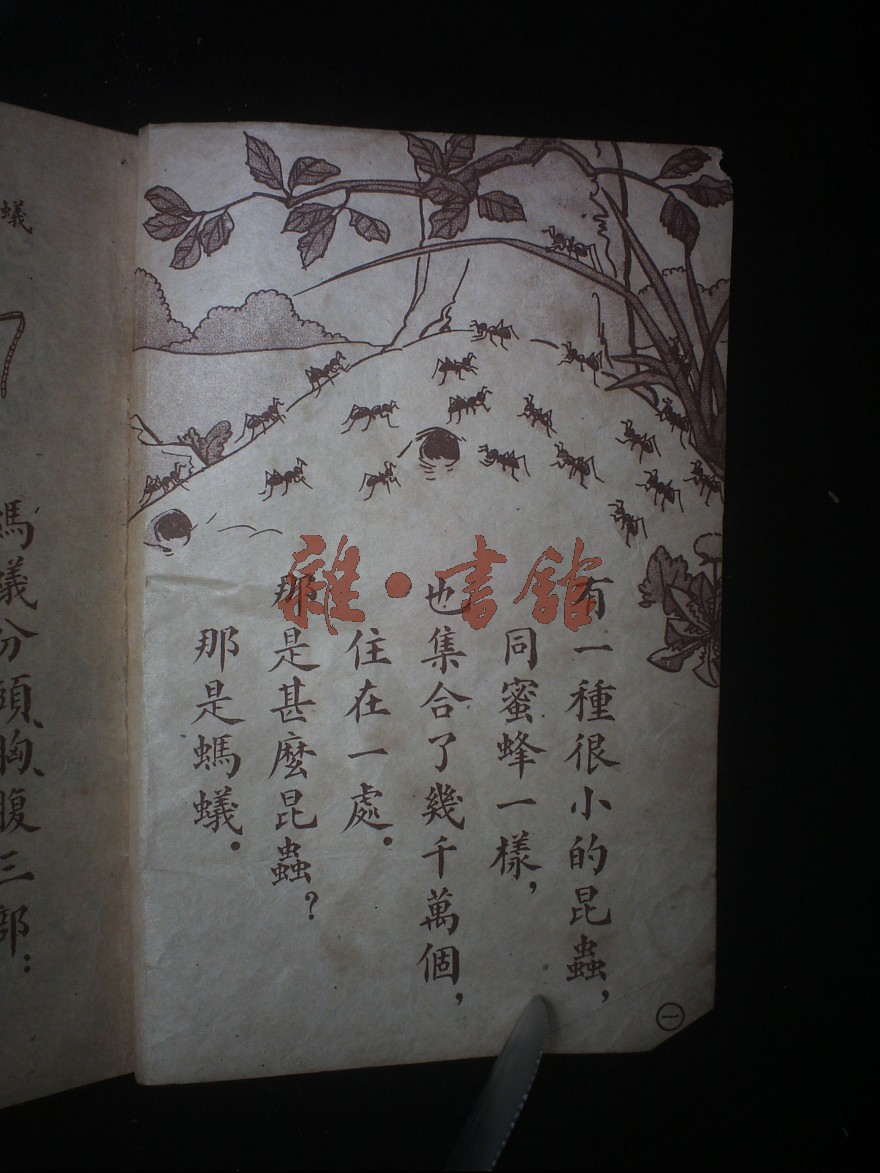 有一種很小的昆蟲，
同蜜蜂一樣，
也集合了幾千萬個，
住在一處．
那是甚麼昆蟲？
那是螞蟻．
㊀
雜·書館
蟻
螞蟻分頭、胸、腹三部：